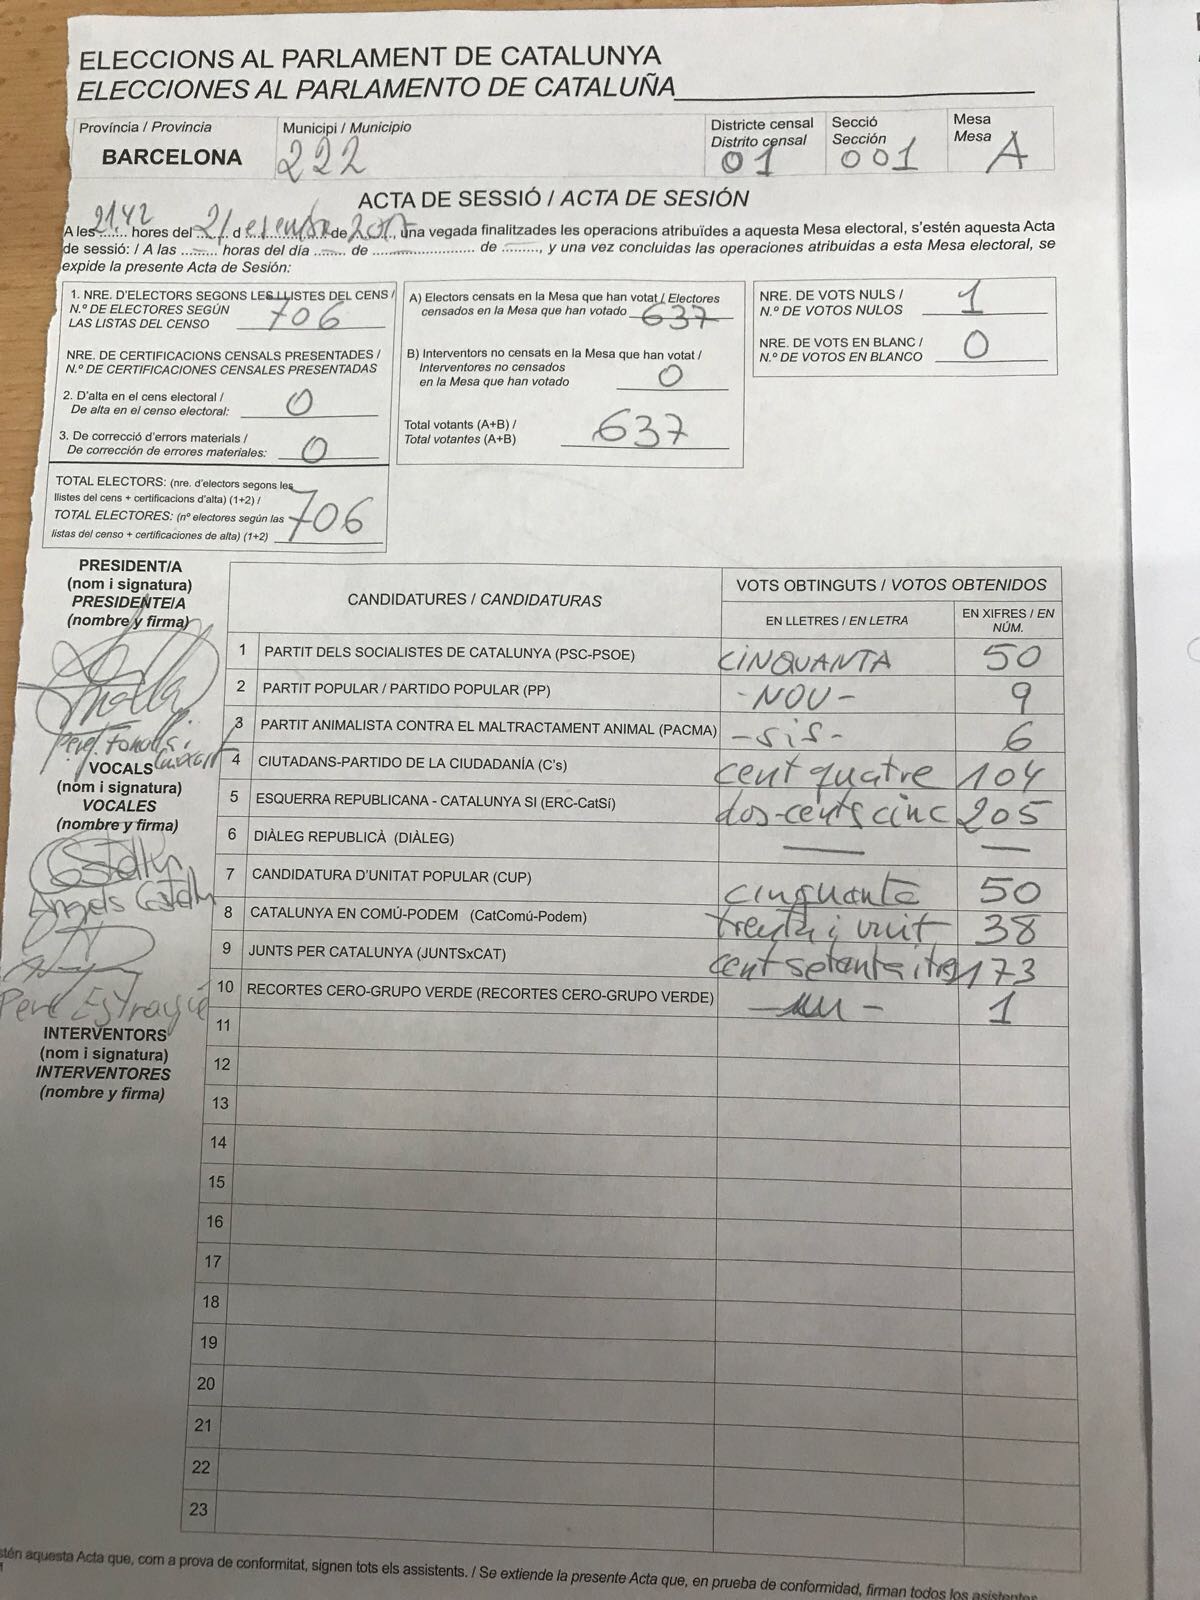 ELECCIONS AL PARLAMENT DE CATALUNYA
ELECCIONES AL PARLAMENTO DE CATALUÑA
Província / Provincia
BARCELONA
Municipi / Municipio
222
Districte censal
Distrito censal
01
Secció
Sección
001
Mesa
Mesa
A
ACTA DE SESSIÓ / ACTA DE SESIÓN
A les 2142 hores del 21 d de 2017, una vegada finalitzades les operacions atribuïdes a aquesta Mesa electoral, s'estén aquesta Acta
de sessió: / A las ........ horas del día ........ de ........................ de ........, y una vez concluidas las operaciones atribuidas a esta Mesa electoral, se
expide la presente Acta de Sesión:
1. NRE. D'ELECTORS SEGONS LES LLISTES DEL CENS /
N.º DE ELECTORES SEGÚN
LAS LISTAS DEL CENSO 706
NRE. DE CERTIFICACIONS CENSALS PRESENTADES /
N.º DE CERTIFICACIONES CENSALES PRESENTADAS
2. D'alta en el cens electoral /
De alta en el censo electoral: 0
3. De correcció d'errors materials /
De corrección de errores materiales: 0
TOTAL ELECTORS: (nre. d'electors segons les
llistes del cens + certificacions d'alta) (1+2) /
TOTAL ELECTORES: (nº electores según las
listas del censo + certificaciones de alta) (1+2) 706
A) Electors censats en la Mesa que han votat / Electores
censados en la Mesa que han votado 637
B) Interventors no censats en la Mesa que han votat /
Interventores no censados
en la Mesa que han votado 0
Total votants (A+B) /
Total votantes (A+B) 637
NRE. DE VOTS NULS /
N.º DE VOTOS NULOS 1
NRE. DE VOTS EN BLANC /
N.º DE VOTOS EN BLANCO 0
PRESIDENT/A
(nom i signatura)
PRESIDENTE/A
(nombre y firma)
VOCALS
(nom i signatura)
VOCALES
(nombre y firma)
Angels
Pere
INTERVENTORS
(nom i signatura)
INTERVENTORES
(nombre y firma)
CANDIDATURES / CANDIDATURAS
VOTS OBTINGUTS / VOTOS OBTENIDOS
EN LLETRES / EN LETRA
EN XIFRES / EN NÚM.
1 PARTIT DELS SOCIALISTES DE CATALUNYA (PSC-PSOE) CINQUANTA 50
2 PARTIT POPULAR / PARTIDO POPULAR (PP) - NOU - 9
3 PARTIT ANIMALISTA CONTRA EL MALTRACTAMENT ANIMAL (PACMA) - sis - 6
4 CIUTADANS-PARTIDO DE LA CIUDADANÍA (C's) cent quatre 104
5 ESQUERRA REPUBLICANA - CATALUNYA SI (ERC-CatSí) dos-cents cinc 205
6 DIÀLEG REPUBLICÀ (DIÀLEG) — —
7 CANDIDATURA D'UNITAT POPULAR (CUP) cinquanta 50
8 CATALUNYA EN COMÚ-PODEM (CatComú-Podem) trenta i vuit 38
9 JUNTS PER CATALUNYA (JUNTSxCAT) cent setenta i tres 173
10 RECORTES CERO-GRUPO VERDE (RECORTES CERO-GRUPO VERDE) - un - 1
11
12
13
14
15
16
17
18
19
20
21
22
23
aquesta Acta que, com a prova de conformitat, signen tots els assistents. / Se extiende la presente Acta que, en prueba de conformidad, firman todos los asistentes